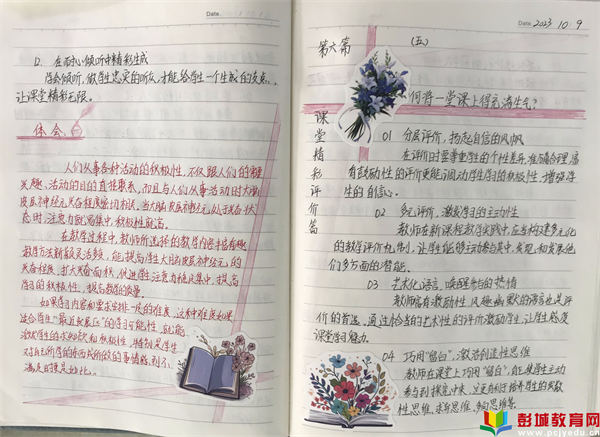 Date.
12. 在耐心倾听中精彩生成
学会倾听,做学生忠实的听众,才能给学生一个生成的支点,
让课堂精彩无限。
体会
人们从事各种活动的积极性,不仅跟人们的
兴趣、活动的目的直接联系,而且与人们从事活动时大脑
皮层神经元兴奋程度密切相关,当大脑皮层神经元处于兴奋状
态时,注意力就易集中,积极性就高。
在教学过程中,教师所选择的教学内容丰富有趣
教学方法新颖灵活多变,能提高学生大脑皮层神经元的
兴奋程度,扩大兴奋面积,促进学生注意力稳定集中,提高
学习的积极性,提高教学的效率。
如果学习内容和要求安排一定的难度,这种难度如果
适合学生"最近发展区"的学习可能性,就能
激发学生的求知欲和积极性,特别是学生
对自己所学的东西成功的
满足时更是如此。
Date 2023 10. 9
第六篇 (五)
课堂精彩评价篇
何将一堂课上得充满生气?
01 分层评价,扬起自信的风帆
在评价时要尊重学生的个性差异,准确合理,富
有鼓励性的评价更能调动学生学习的积极性,增强学
生的自信心。
02 多元评价,激发学习的主动性
教师在新课程教学实践中,应当构建多元化
的教学评价机制,让学生能够主动参与其中,发现和发展他
们多方面的潜能。
03 艺术化语言,唤醒学习的热情
教师富有激励性、风趣幽默的语言也是评
价的首选,通过恰当的艺术性的评价激励学生,让学生感受
课堂学习魅力。
04 巧用"留白",激活创造性思维
教师在课堂上巧用"留白",能使学生主动
参与到探究中来,这更有利于培养学生的发散
性思维、求异思维、创新思维等。
彭城教育网
www.pcjyedu.cn